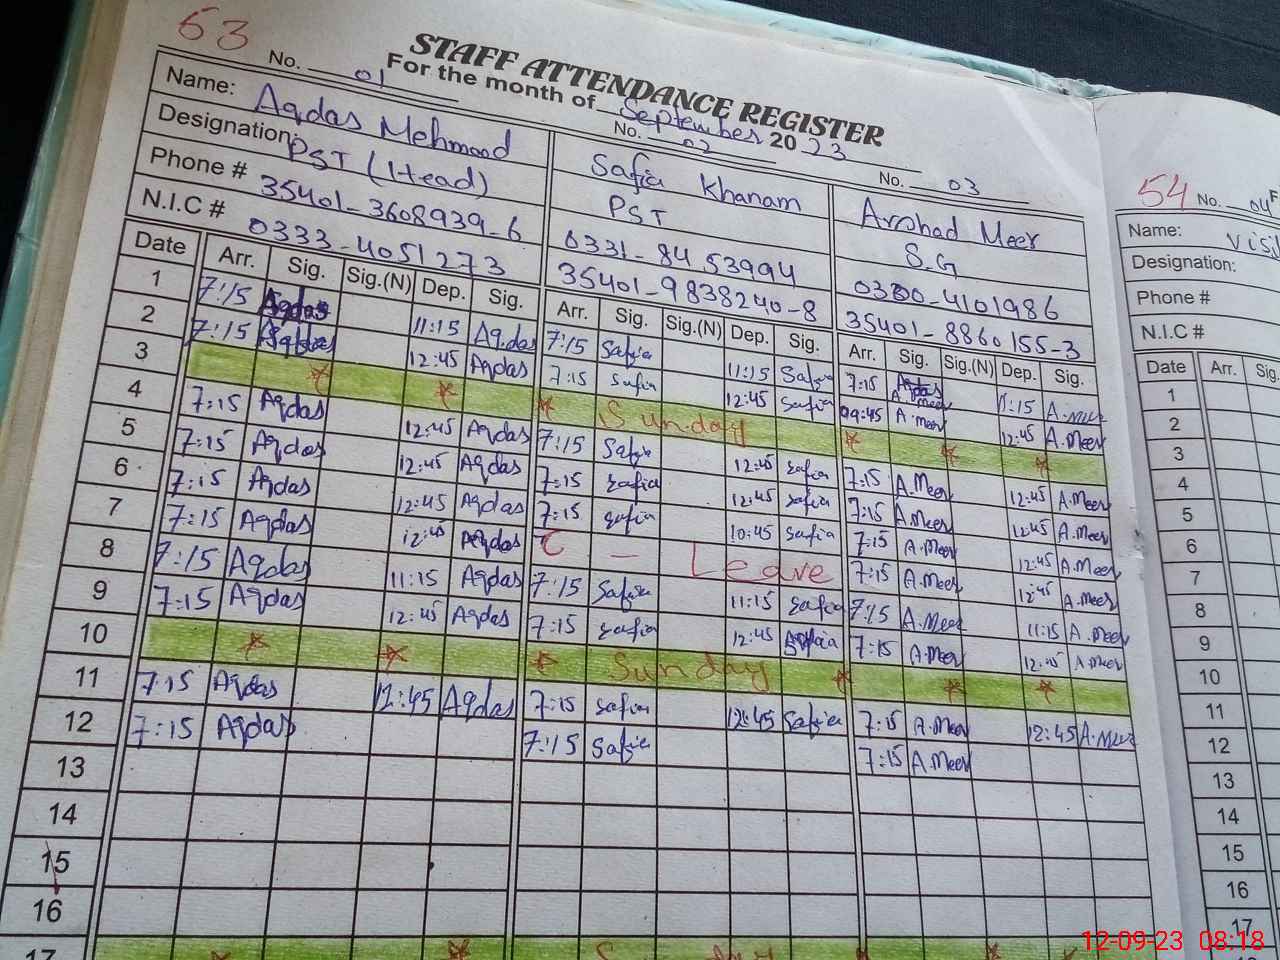 53
STAFF ATTENDANCE REGISTER
For the month of September 2023
No. 01 No. 02 No. 03
Name: Aqdas Mehmood Safia Khanam Arshad Meer
Designation: PST (Head) PST S.G
Phone # 35401-3608939-6 0331-8453994 0300-4101986
N.I.C # 0333-4051273 35401-9838240-8 35401-8860155-3
Date Arr. Sig. Sig.(N) Dep. Sig. Arr. Sig. Sig.(N) Dep. Sig. Arr. Sig. Sig.(N) Dep. Sig.
1 7:15 Aqdas 11:15 Aqdas 7:15 Safia 11:15 Safia 7:15 A.Meer 11:15 A.Meer
2 7:15 Aqdas 12:45 Aqdas 7:15 Safia 12:45 Safia 09:45 A.Meer 12:45 A.Meer
3 Sunday
4 7:15 Aqdas 12:45 Aqdas 7:15 Safia 12:45 Safia 7:15 A.Meer 12:45 A.Meer
5 7:15 Aqdas 12:45 Aqdas 7:15 Safia 12:45 Safia 7:15 A.Meer 12:45 A.Meer
6 7:15 Aqdas 12:45 Aqdas 7:15 Safia 10:45 Safia 7:15 A.Meer 12:45 A.Meer
7 7:15 Aqdas 12:45 Aqdas C - Leave 7:15 A.Meer 12:45 A.Meer
8 7:15 Aqdas 11:15 Aqdas 7:15 Safia 11:15 Safia 7:15 A.Meer 11:15 A.Meer
9 7:15 Aqdas 12:45 Aqdas 7:15 Safia 12:45 Safia 7:15 A.Meer 12:45 A.Meer
10 Sunday
11 7:15 Aqdas 12:45 Aqdas 7:15 Safia 12:45 Safia 7:15 A.Meer 12:45 A.Meer
12 7:15 Aqdas 7:15 Safia 7:15 A.Meer
13
14
15
16
17
54
No. 04
Name:
Designation:
Phone #
N.I.C #
Date Arr. Sig.
1
2
3
4
5
6
7
8
9
10
11
12
13
14
15
16
17
12-09-23 08:18